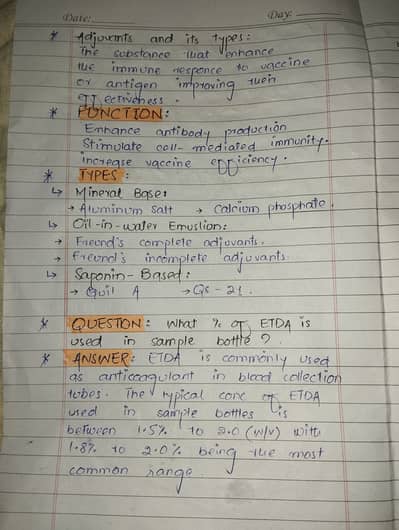 Date: Day:
* Adjuvants and its types:
The substance that enhance
the immune responce to vaccine
or antigen improving their
effectiveness.
* FUNCTION:
Enhance antibody production
Stimulate cell-mediated immunity.
increase vaccine efficiency.
* TYPES:
↳ Mineral Base:
→ Aluminum Salt → Calcium phosphate.
↳ Oil-in-water Emustion:
→ Freund's complete adjuvants.
→ Freund's incomplete adjuvants.
↳ Saponin-Based:
→ Quil A → QS-21.
* QUESTION: What % of ETDA is
used in sample bottle?
* ANSWER: ETDA is commonly used
as anticoagulant in blood collection
tubes. The typical conc of ETDA
used in sample bottles is
between 1.5% to 2.0 (w/v) with
1.8% to 2.0% being the most
common range